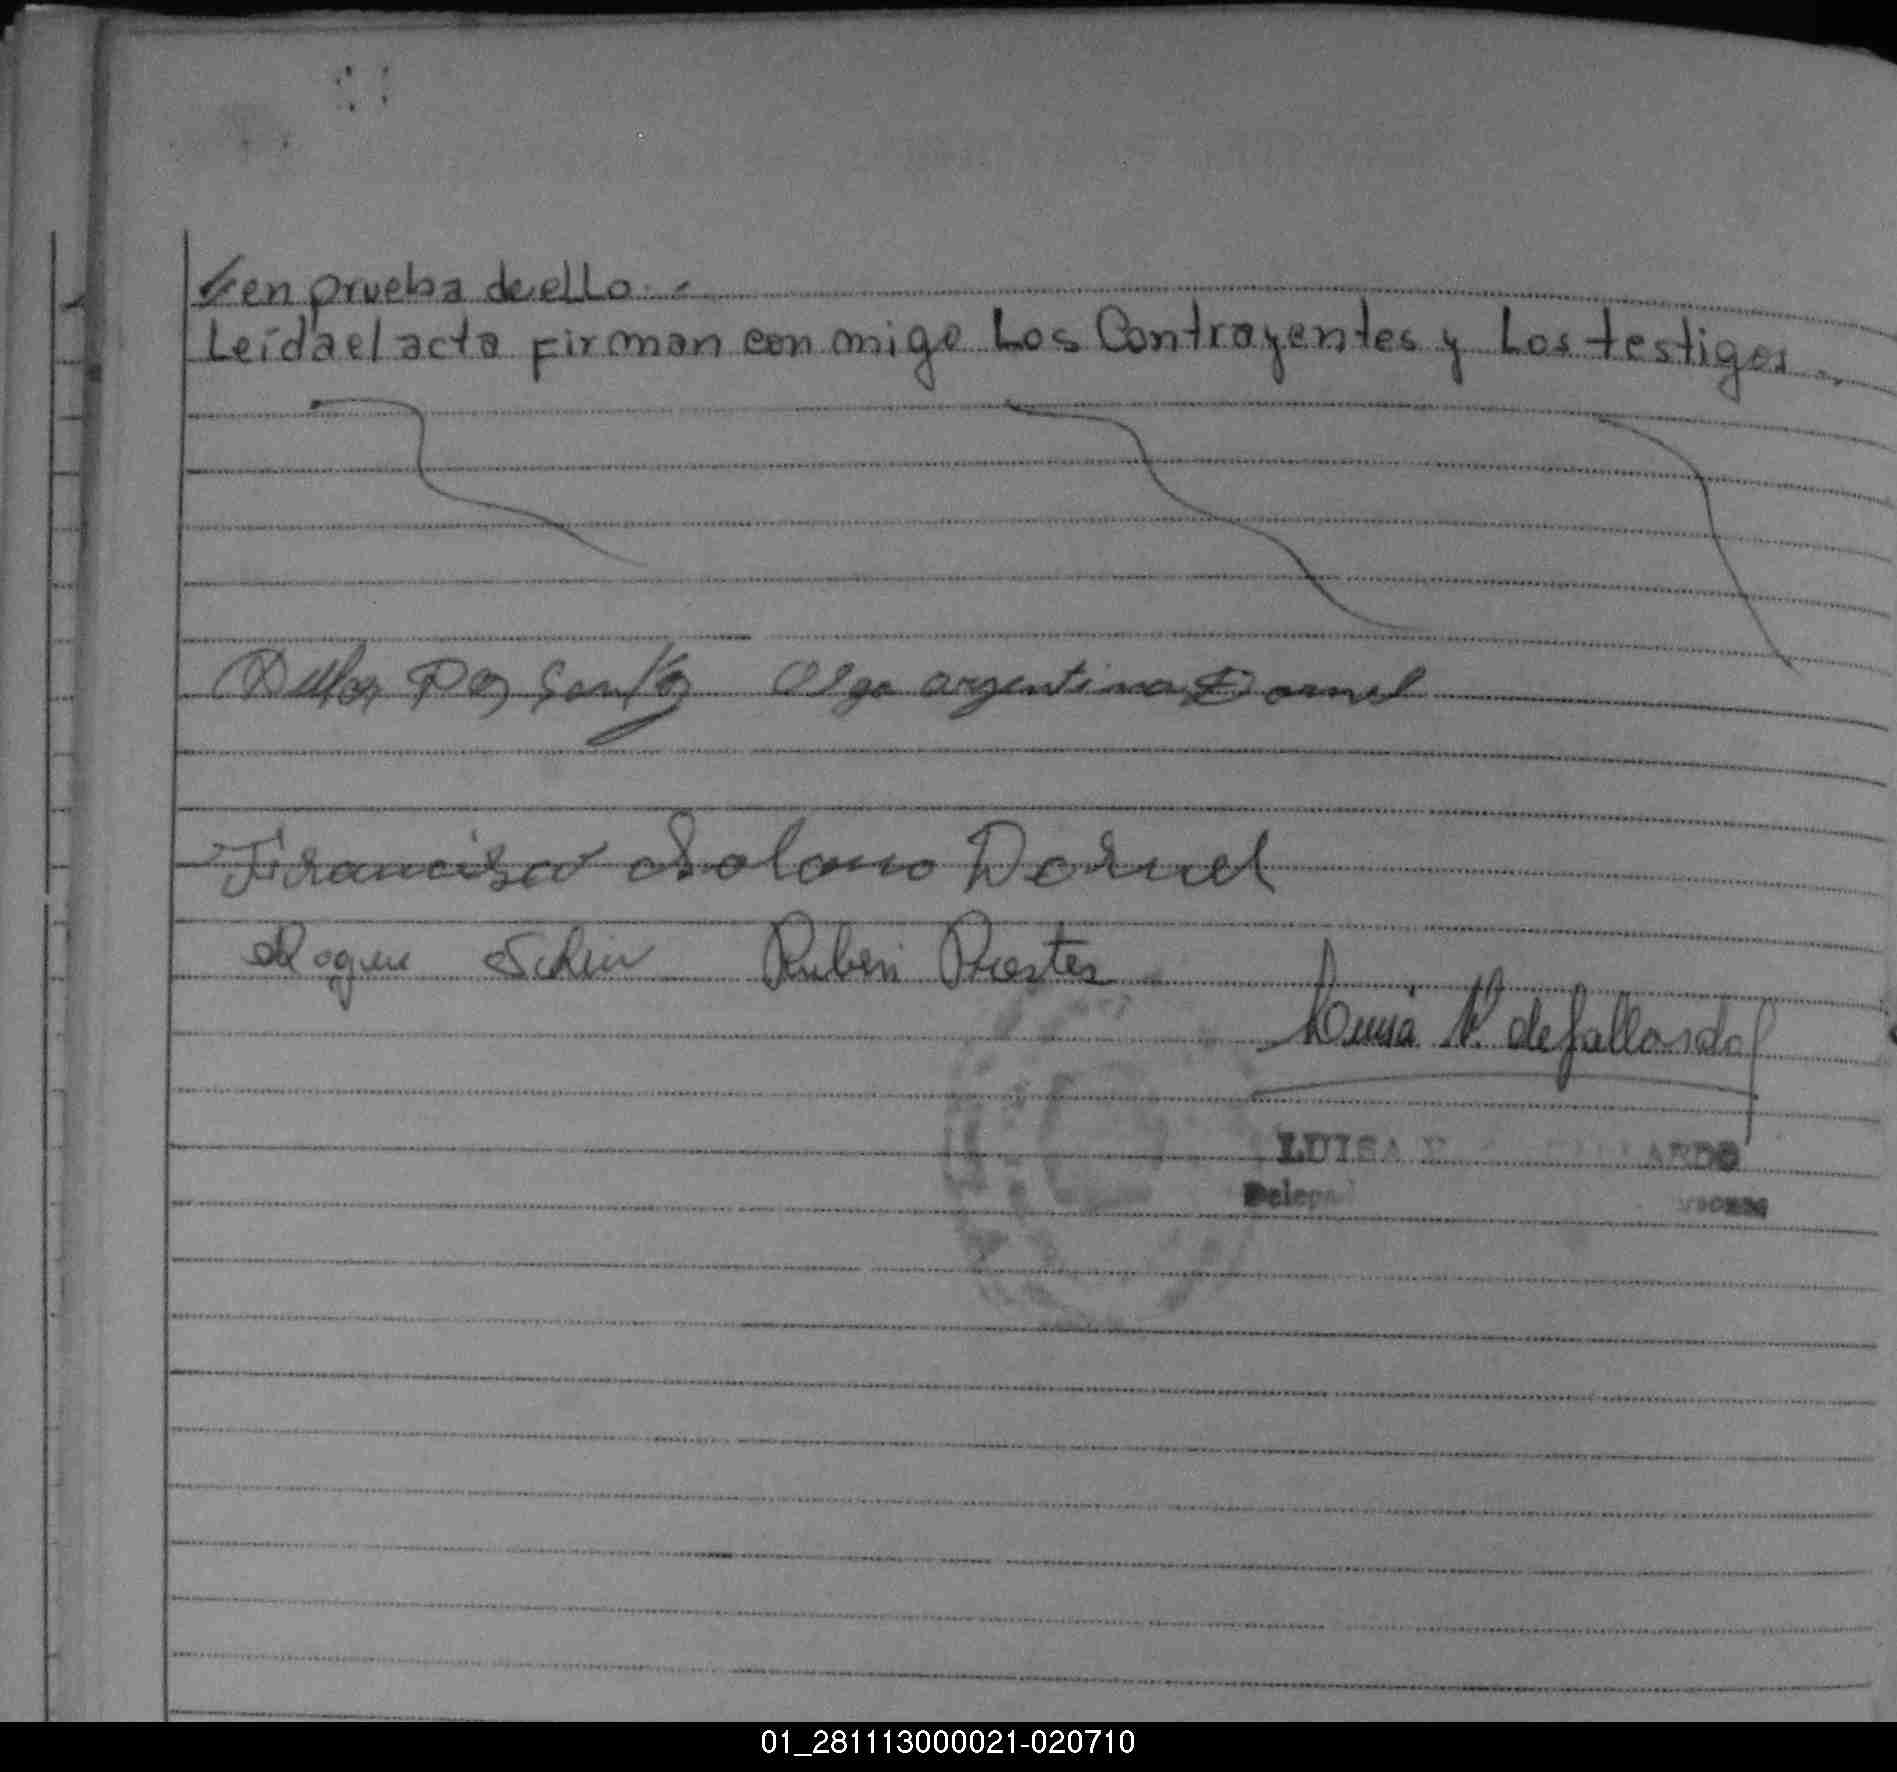 y en prueba de ello. -
Leída el acta firman con migo Los Contrayentes y Los testigos.-
Dos Santos Olga argentina Dornel
Francisco Solano Dornel
Roque Ruben Prestes
Luisa V. de Gallardo
LUISA V ARDO
Delegad
01_281113000021-020710